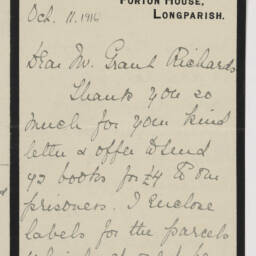 FORTON HOUSE,
LONGPARISH.
Oct. 11. 1916
Dear Mr. Grant Richards
Thank you so
much for your kind
letter & offer to send
93 books for £4 to our
prisoners. I enclose
labels for the parcels